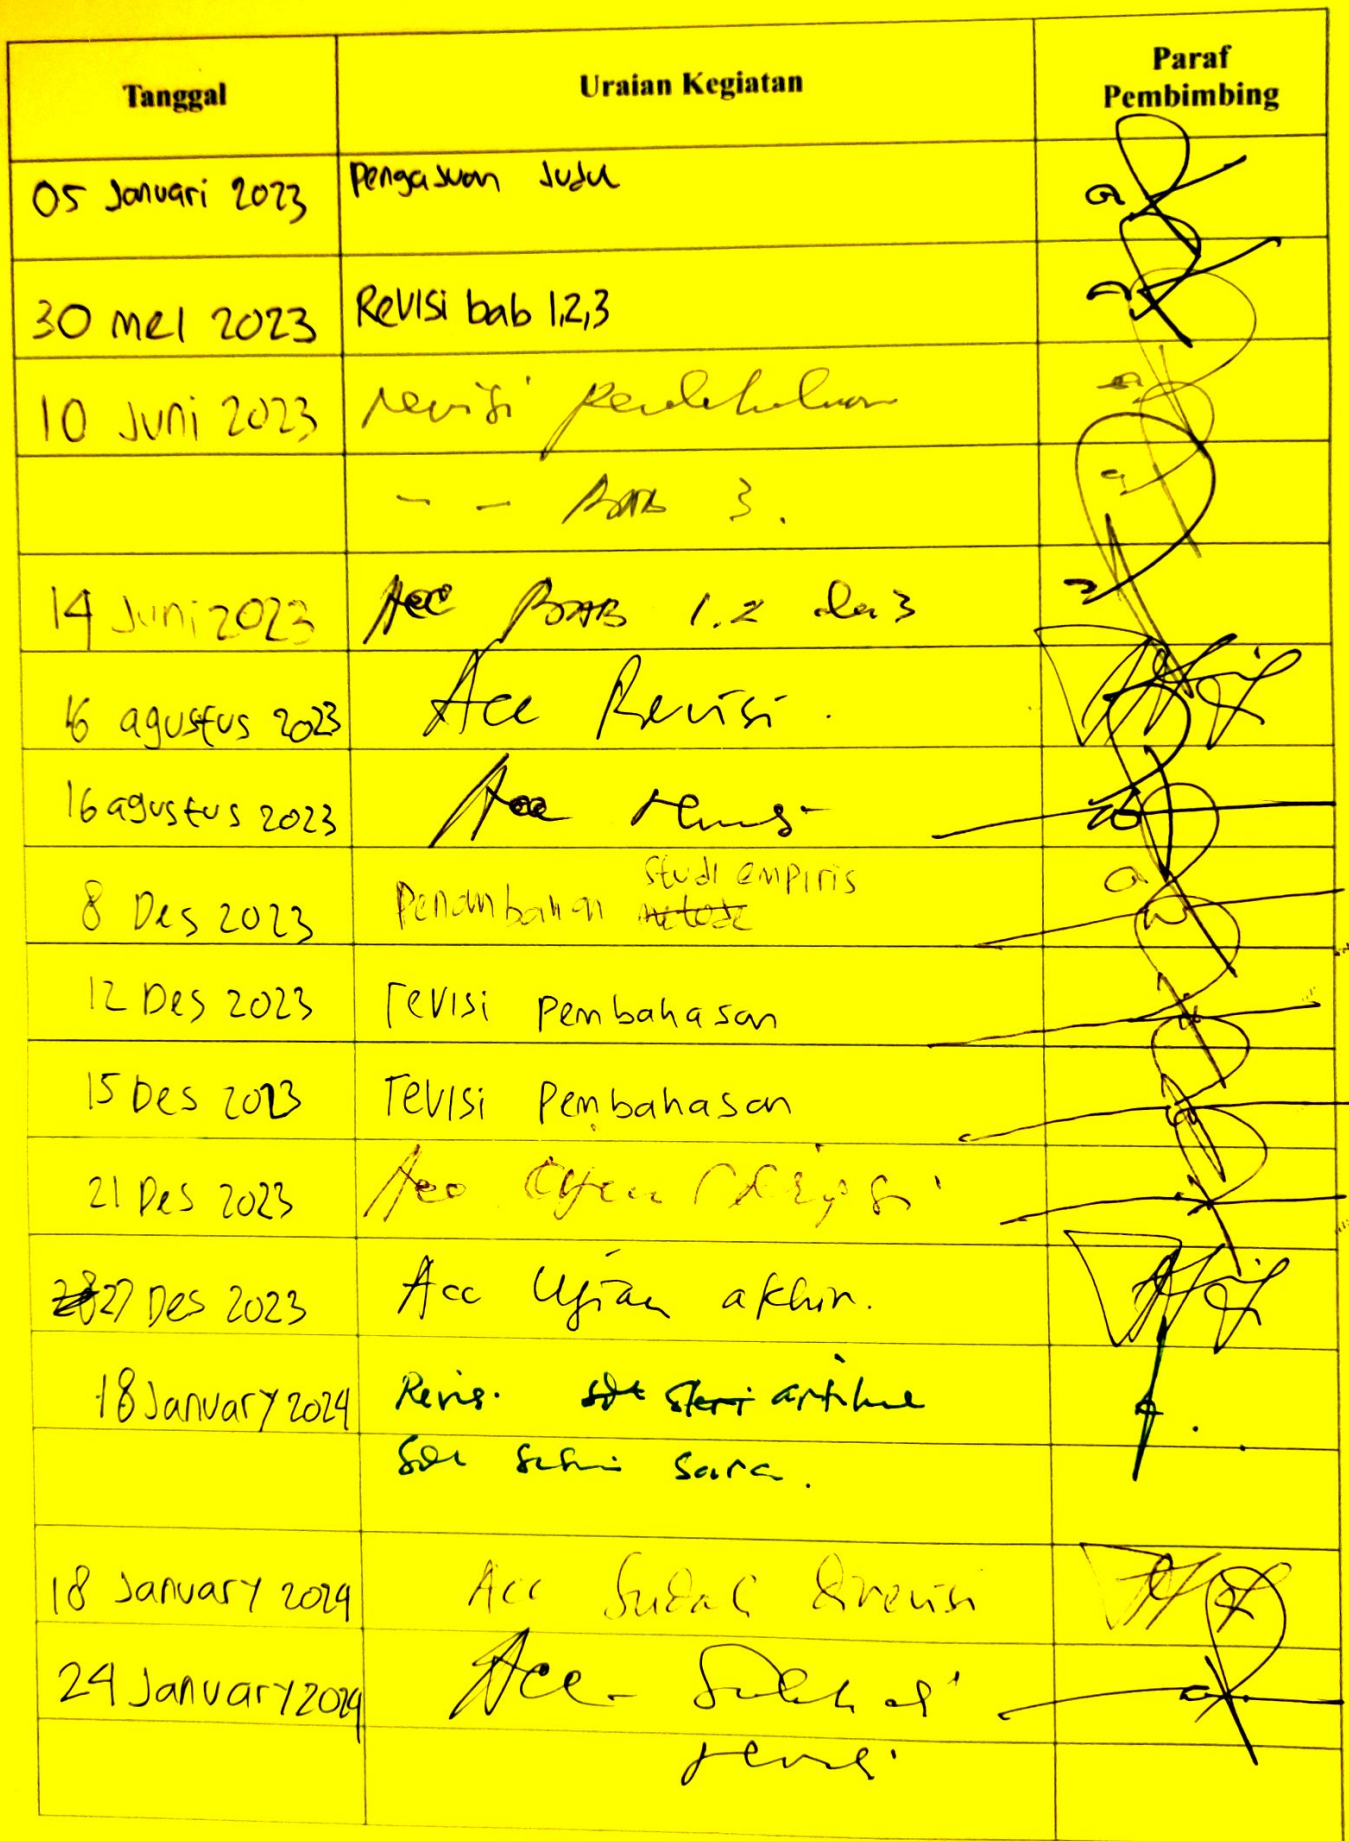 Tanggal Uraian Kegiatan Paraf
Pembimbing
05 Januari 2023 Pengajuan Judul
30 mei 2023 Revisi bab 1,2,3
10 Juni 2023 revisi pendahuluan
- - BAB 3.
14 Juni 2023 Acc BAB 1.2 dan 3
16 agustus 2023 Acc Revisi.
16 agustus 2023 Acc revisi
8 Des 2023 Penambahan studi empiris
12 Des 2023 revisi pembahasan
15 Des 2023 revisi Pembahasan
21 Des 2023 Acc Ujian Skripsi
27 Des 2023 Acc Ujian akhir.
18 January 2024 Revisi
saran.
18 January 2024 Acc Sudah direvisi
24 January 2024 Acc Sudah di
revisi